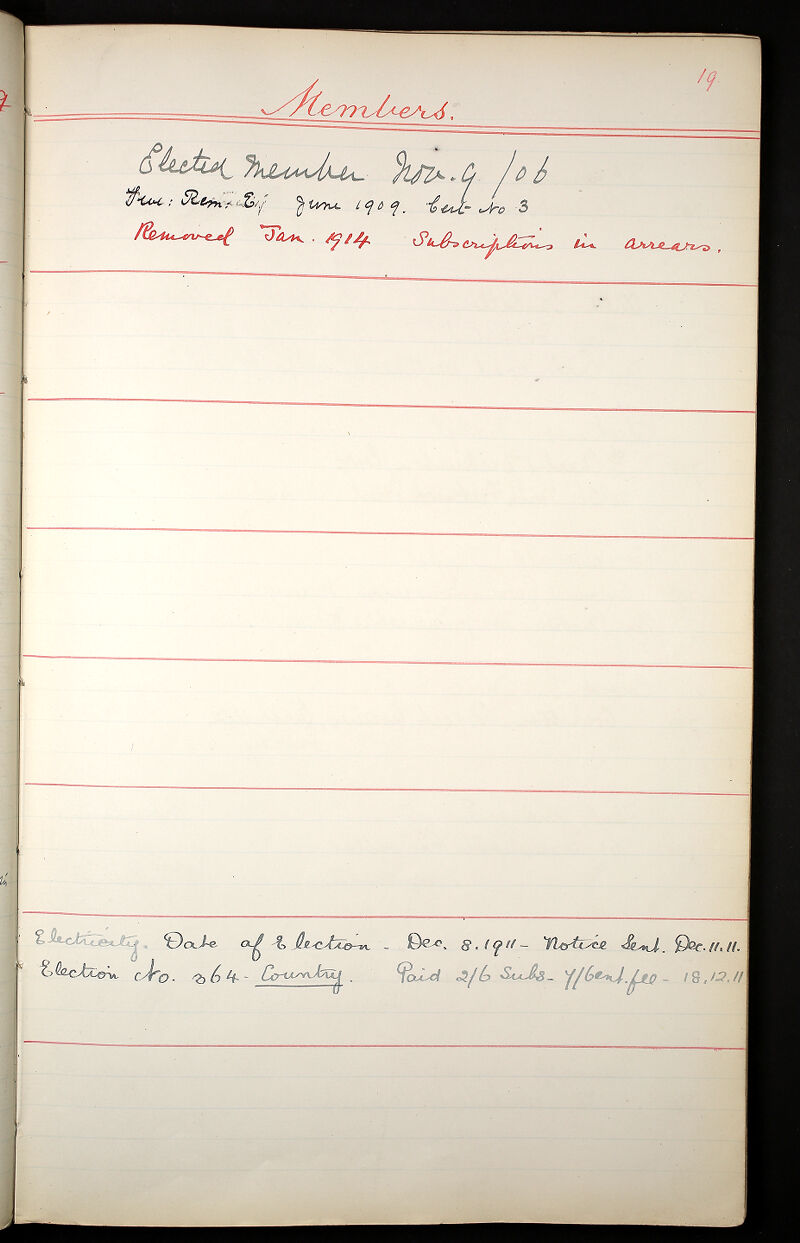 19
Members.
Elected Member Nov. 9 /06
June 1909. Cert No 3
Removed Jan. 1914 Subscriptions in arrears.
Electricity. Date of Election - Dec. 8. 1911 - Notice Sent. Dec. 11. 11.
Election No. 364 - Country. Paid 2/6 Subs - 7/6 ent. fee - 18.12.11